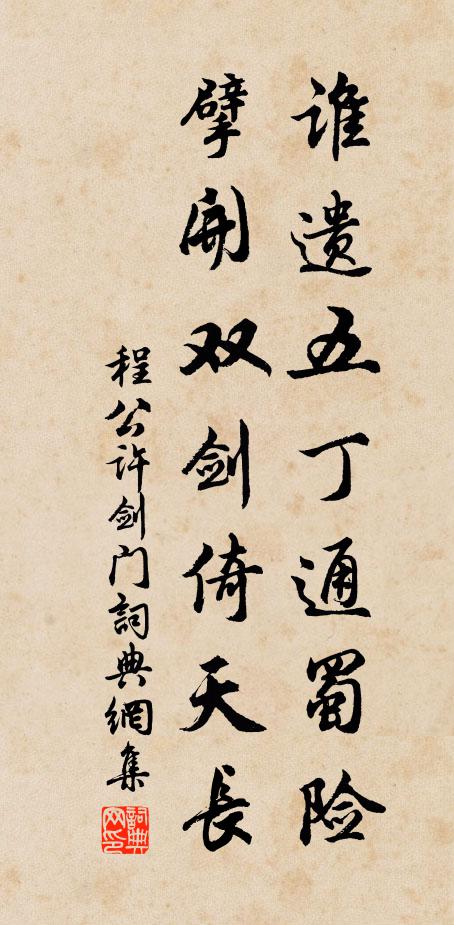 谁遗五丁通蜀险
擘开双剑倚天長
程公许剑门詞典網集
詞典网印